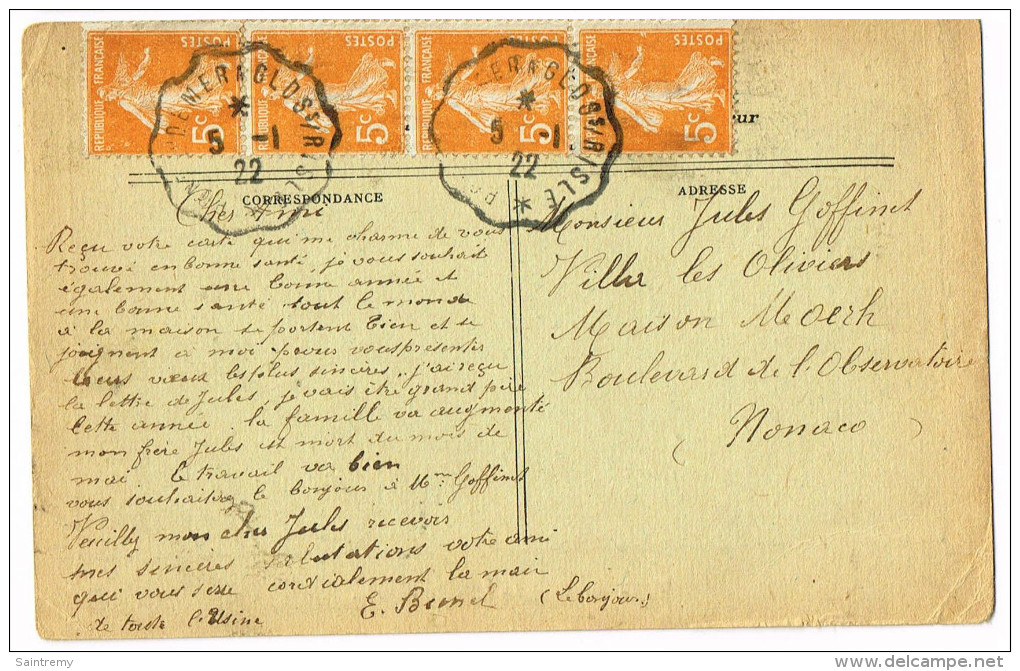 REPUBLIQUE FRANÇAISE POSTES 5c
REPUBLIQUE FRANÇAISE POSTES 5c
REPUBLIQUE FRANÇAISE POSTES 5c
REPUBLIQUE FRANÇAISE POSTES 5c
5 -1
22
5 -1
22
CORRESPONDANCE
Cher Ami
Reçu votre carte qui me charme de vous
trouvé en bonne santé, je vous souhait
également une bonne année et
une bonne santé tout le monde
à la maison se portent bien et se
joignent à moi pour vous présenter
leurs vœux les plus sincères. j'ai reçu
la lettre de Jules, je vais être grand père
cette année. la famille va augmenté
mon frère Jules est mort du mois de
mai le travail va bien
vous souhaitre le bonjour à Mme Goffinet
Veuilly mon cher Jules recevoir
mes sincères salutations votre ami
qui vous serre cordialement la main
E. Bunel (Le bonjour)
de toute l'Usine
ADRESSE
Monsieur Jules Goffinet
Villa les Oliviers
Maison Moerh
Boulevard de l'Observatoire
(Monaco)
Saintremy
delcampe.net